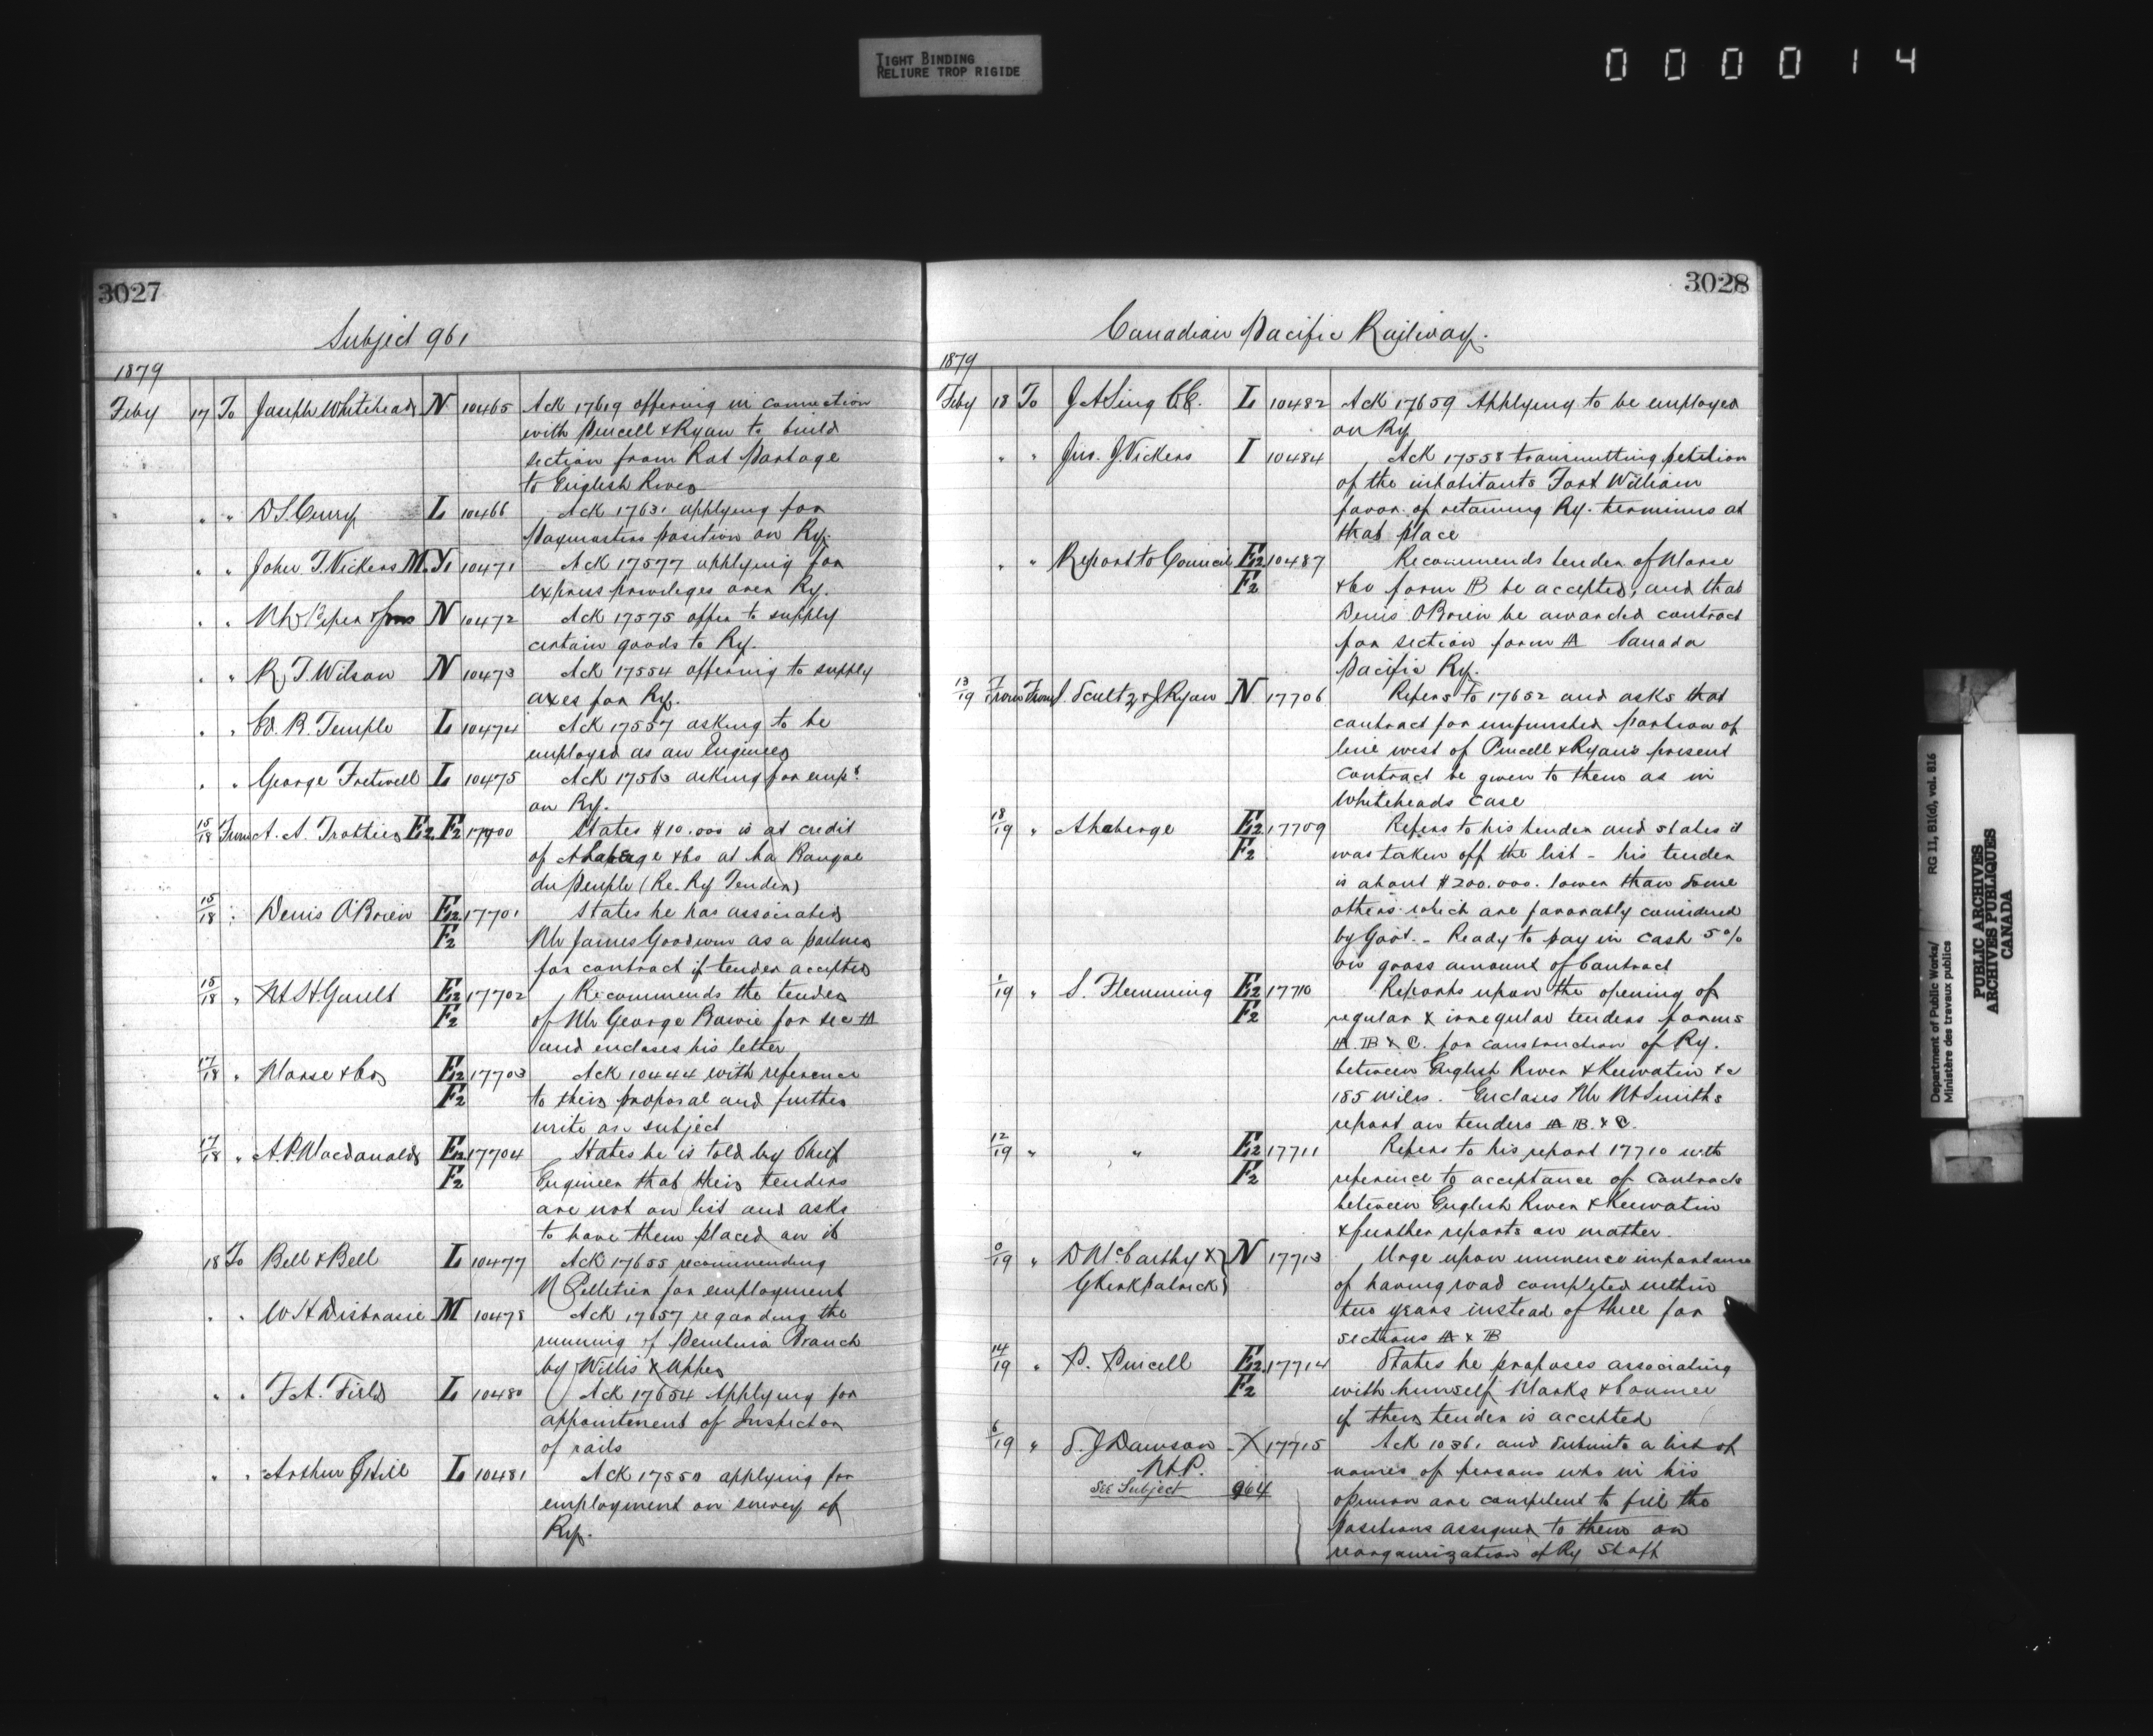 TIGHT BINDING
RELIURE TROP RIGIDE
000014
3027
Subject 961
1879
Feby 17 To Joseph Whitehead N 10465 Ack 17619 offering in connection
with Purcell & Ryan to build
section from Rat Portage
to English River
" " D S Curry L 10466 Ack 17631 applying for
Paymasters position on Ry.
" " John J. Vickers M.Y. 10471 Ack 17577 applying for
express privileges over Ry.
" " & Sons N 10472 Ack 17575 offer to supply
certain goods to Ry.
" " R. T. Wilson N 10473 Ack 17554 offering to supply
axes for Ry.
" " Ed. R. Temple L 10474 Ack 17557 asking to be
employed as an Engineer
" " George Fretwell L 10475 Ack 17563 asking for empt
on Ry.
15/18 From A. A. Trottier E2 F2 17700 States $10.000 is at credit
of & Co at La Banque
du Peuple (Re. Ry Tender)
15/18 " Denis O'Brien E2 17701 States he has associated
F2 Mr James Goodwin as a partner
for contract if tender accepted
15/18 " M H Gault E2 17702 Recommends the tender
F2 of Mr George Bowie for sec A
and encloses his letter
17/18 " Morse & Co E2 17703 Ack 10444 with reference
F2 to their proposal and further
write on subject
17/18 " A. P. Macdonald E2 17704 States he is told by Chief
F2 Engineer that their tenders
are not on list and asks
to have them placed on it
18 To Bell & Bell L 10477 Ack 17655 recommending
M Pelletier for employment
" " W H Disbrowe M 10478 Ack 17657 regarding the
running of Pembina Branch
by Willis & Upper
" " F. A. Field L 10480 Ack 17654 Applying for
appointment of Inspector
of rails
" " Arthur J Hill L 10481 Ack 17550 applying for
employment on survey of
Ry.
3028
Canadian Pacific Railway.
1879
Feby 18 To J A Ling C.E. L 10482 Ack 17659 Applying to be employed
on Ry
" " Jno. J. Vickers I 10484 Ack 17558 transmitting petition
of the inhabitants Fort William
favor of retaining Ry. terminus at
that place
" " Report to Council E2 10487 Recommends tender of Morse
F2 & Co form B be accepted, and that
Denis O'Brien be awarded contract
for section form A Canada
Pacific Ry.
13/19 From & J Ryan N 17706 Refers to 17652 and asks that
contract for unfinished portion of
line west of Purcell & Ryan's present
contract be given to them as in
Whiteheads case
18/19 " A Laberge E2 17709 Refers to his tender and states it
F2 was taken off the list - his tender
is about $200.000. lower than some
others which are favorably considered
by Govt. - Ready to pay in cash 5%
on gross amount of Contract
1/19 " S. Flemming E2 17710 Reports upon the opening of
F2 regular & irregular tenders forms
A. B & C. for construction of Ry.
between English River & Keewatin &c
185 miles. Encloses Mr M Smiths
report on tenders A B. & C.
12/19 " " E2 17711 Refers to his report 17710 with
F2 reference to acceptance of Contracts
between English River & Keewatin
& further reports on matter.
/19 " D McCarthy & N 17713 Urge upon importance
G Kirkpatrick of having road completed within
two years instead of three for
sections A & B
14/19 " P. Purcell E2 17714 States he proposes associating
F2 with himself Marks & Conmee
if their tender is accepted
6/19 " S. J Dawson X 17715 Ack 10361 and submits a list of
M.P. names of persons who in his
See Subject 964 opinion are competent to fill the
positions assigned to them on
reorganization of Ry Staff
Department of Public Works/
Ministère des travaux publics
RG 11, B1(d), vol. 816
PUBLIC ARCHIVES
ARCHIVES PUBLIQUES
CANADA